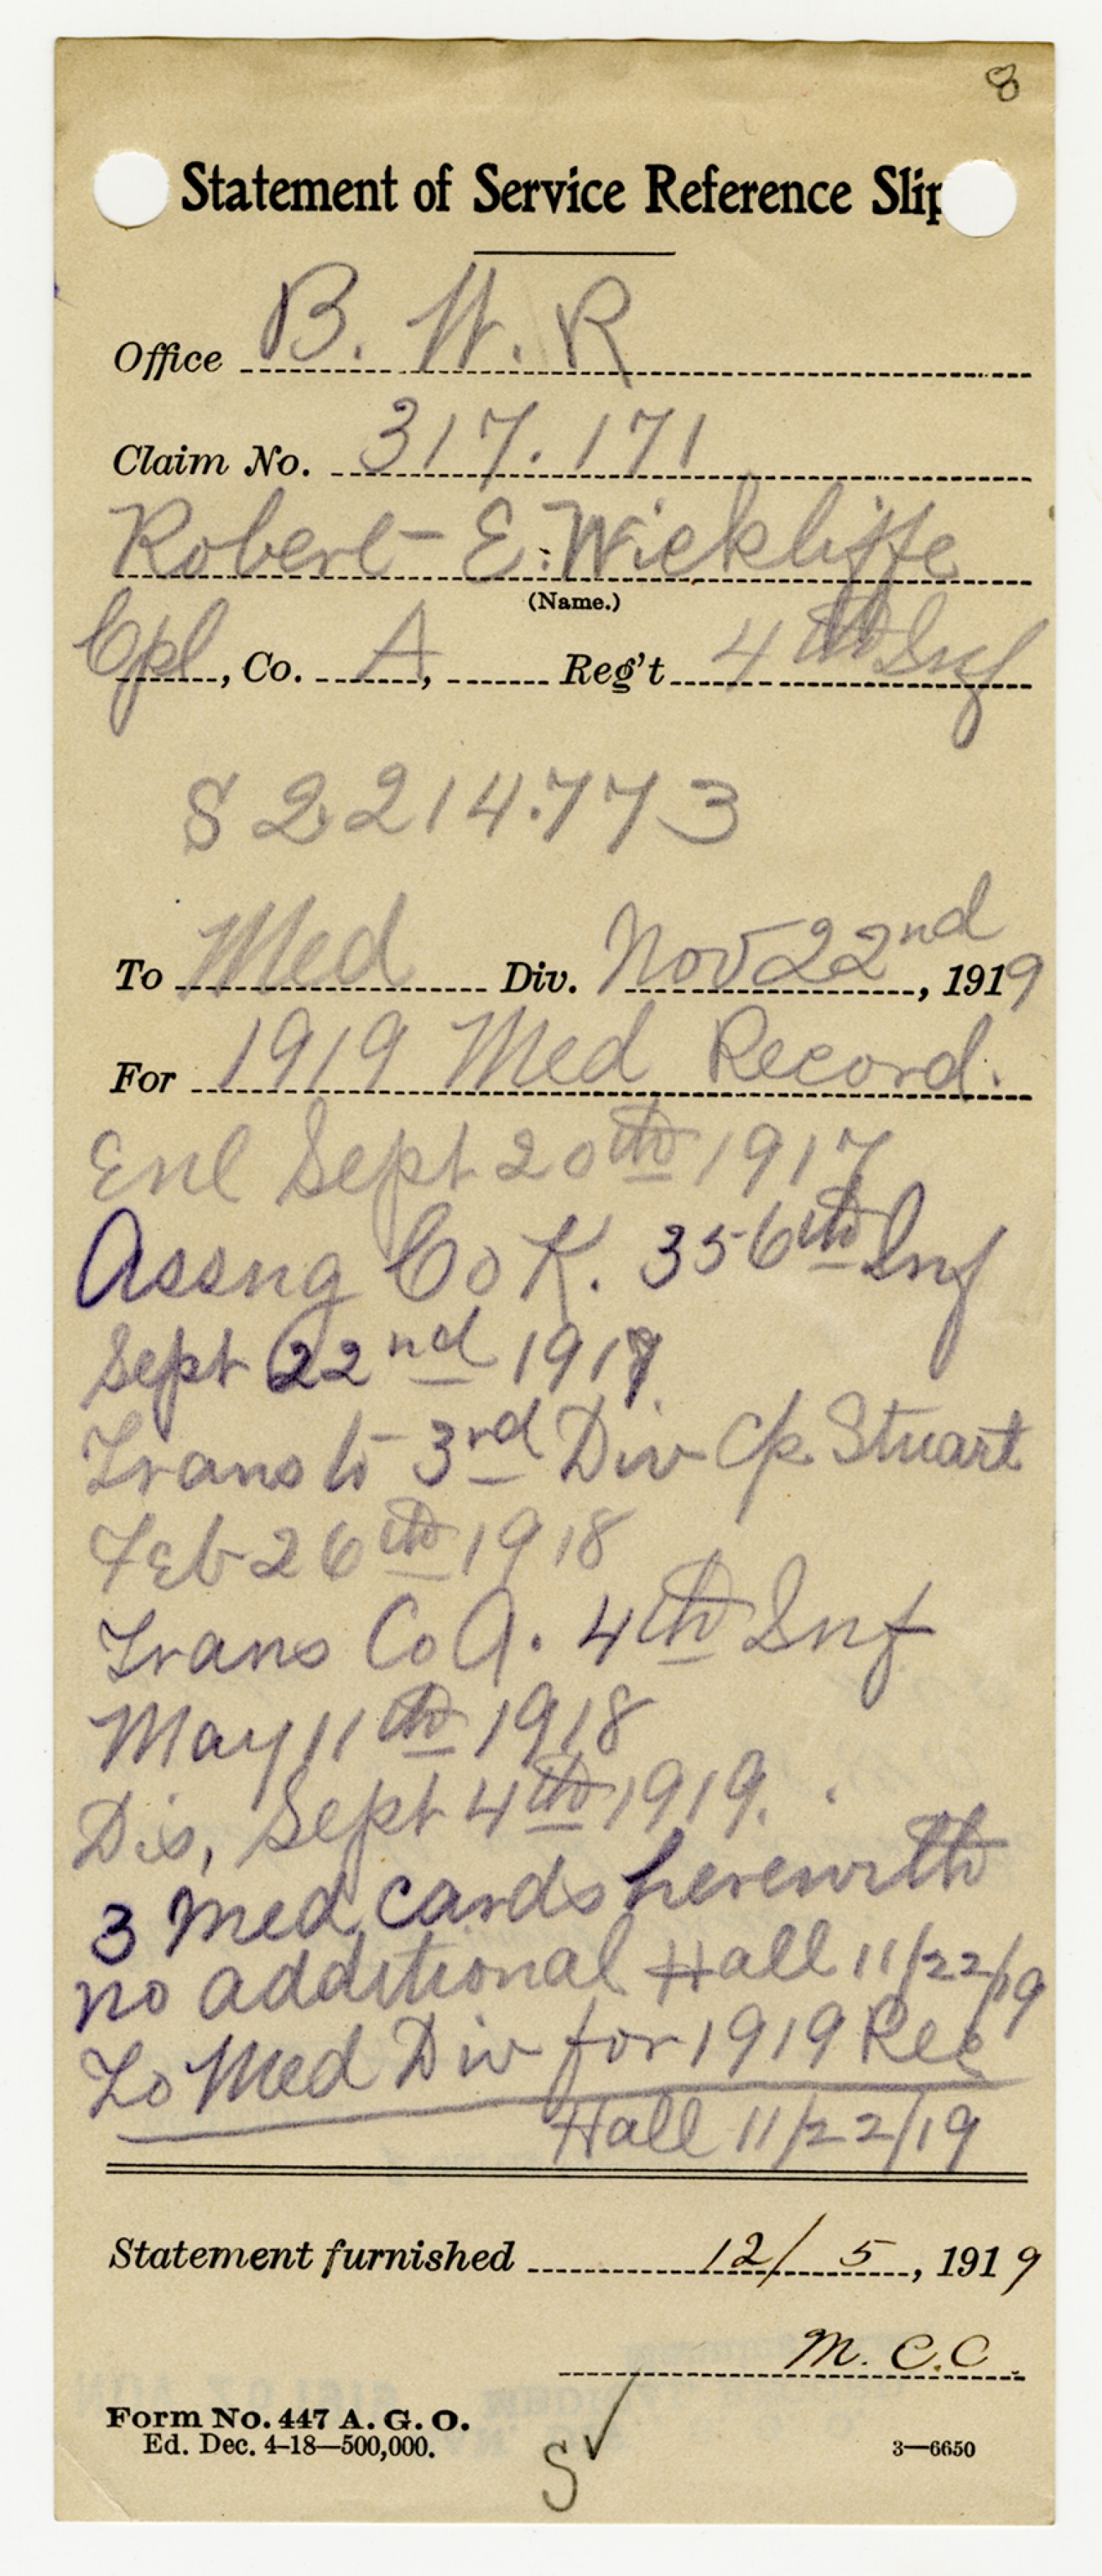 8
Statement of Service Reference Slip
Office B. W. R
Claim No. 317.171
Robert E. Wickliffe
(Name.)
Cpl, Co. A, Reg't 4th Inf
S 2214.773
To Med Div. Nov 22nd, 1919
For 1919 Med Record.
Enl Sept 20th 1917
Assng Co K. 356th Inf
Sept 22nd 1917
Trans to 3rd Div C/p Stuart
Feb 26th 1918
Trans Co A. 4th Inf
May 11th 1918
Dis, Sept 4th 1919.
3 Med cards herewith
no additional Hall 11/22/19
To Med Div for 1919 Rec
Hall 11/22/19
Statement furnished 12/5, 1919
M. C. C.
Form No. 447 A. G. O.
Ed. Dec. 4-18—500,000.
3—6650
S